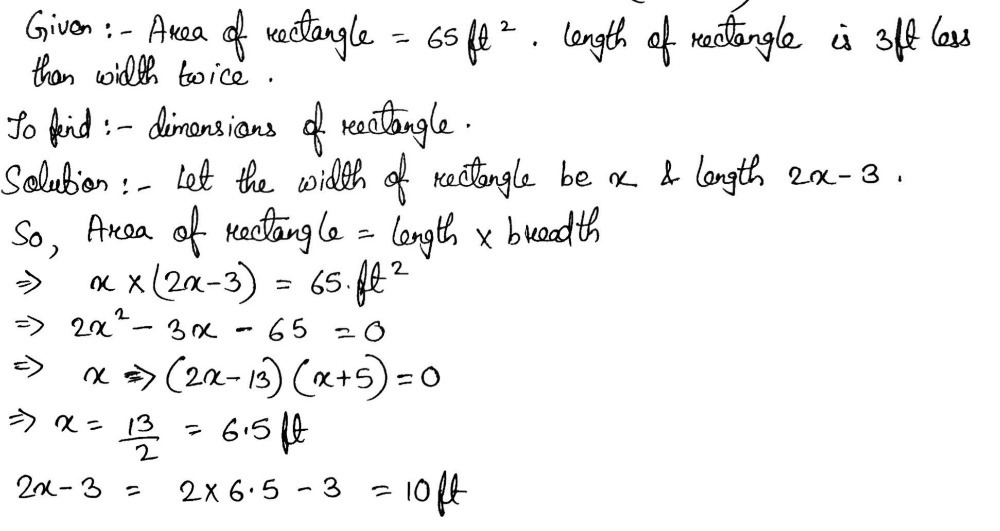 Given :- Area of rectangle = 65 ft². length of rectangle is 3ft less
than width twice .
To find :- dimensions of rectangle .
Solution :- Let the width of rectangle be x & length 2x-3 .
So, Area of rectangle = length x breadth
⇒ x × (2x-3) = 65. ft²
⇒ 2x² - 3x - 65 = 0
⇒ x ⇒ (2x-13) (x+5) = 0
⇒ x = 13/2 = 6.5 ft
2x-3 = 2×6.5 - 3 = 10 ft